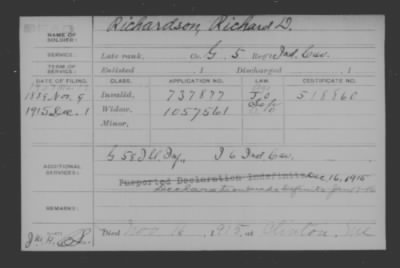 NAME OF SOLDIER: Richardson, Richard D.
SERVICE: Late rank, Co. G, 5 Reg't Ind. Cav.
TERM OF SERVICE: Enlisted , 1 Discharged , 1
DATE OF FILING. CLASS. APPLICATION NO. LAW. CERTIFICATE NO.
Nov. 9 Invalid, 737877 518860
1915 Dec. 1 Widow, 1057561
Minor,
ADDITIONAL SERVICES: G 58 Ill. Inf., I 6 Ind. Cav.
Purported Declaration Indefinite Dec 16, 1915
Declaration made definite Jan
REMARKS:
Died Nov. 16, 1915, at Clinton,